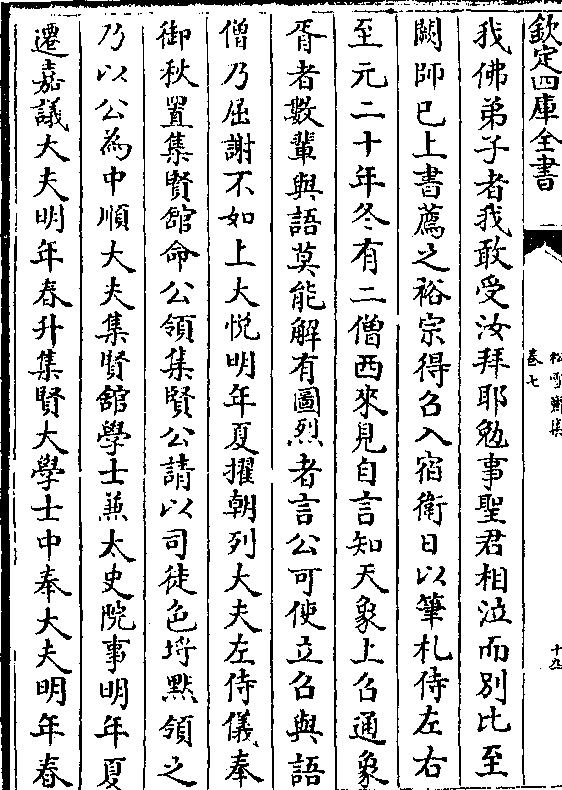 欽定四庫全書
松雪齋集
卷七
十九
我佛弟子者我敢受汝拜耶勉事聖君相泣而別比至
闕師已上書薦之裕宗得召入宿衛日以筆札侍左右
至元二十年冬有二僧西來見自言知天象上召通象
胥者數輩與語莫能解有圖烈者言公可使立召與語
僧乃屈謝不如上大悅明年夏擢朝列大夫左侍儀奉
御秋置集賢館命公領集賢公請以司徒色埒黙領之
乃以公為中順大夫集賢館學士兼太史院事明年夏
遷嘉議大夫明年春升集賢大學士中奉大夫明年春